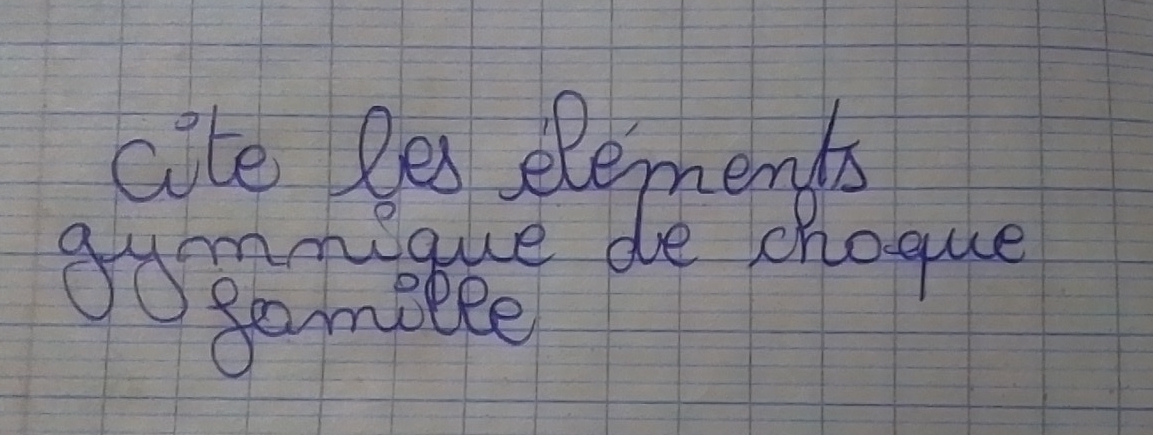 cite les éléments
gymnique de chaque
famille